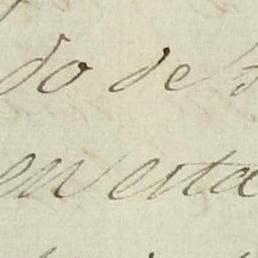 do de
en esta